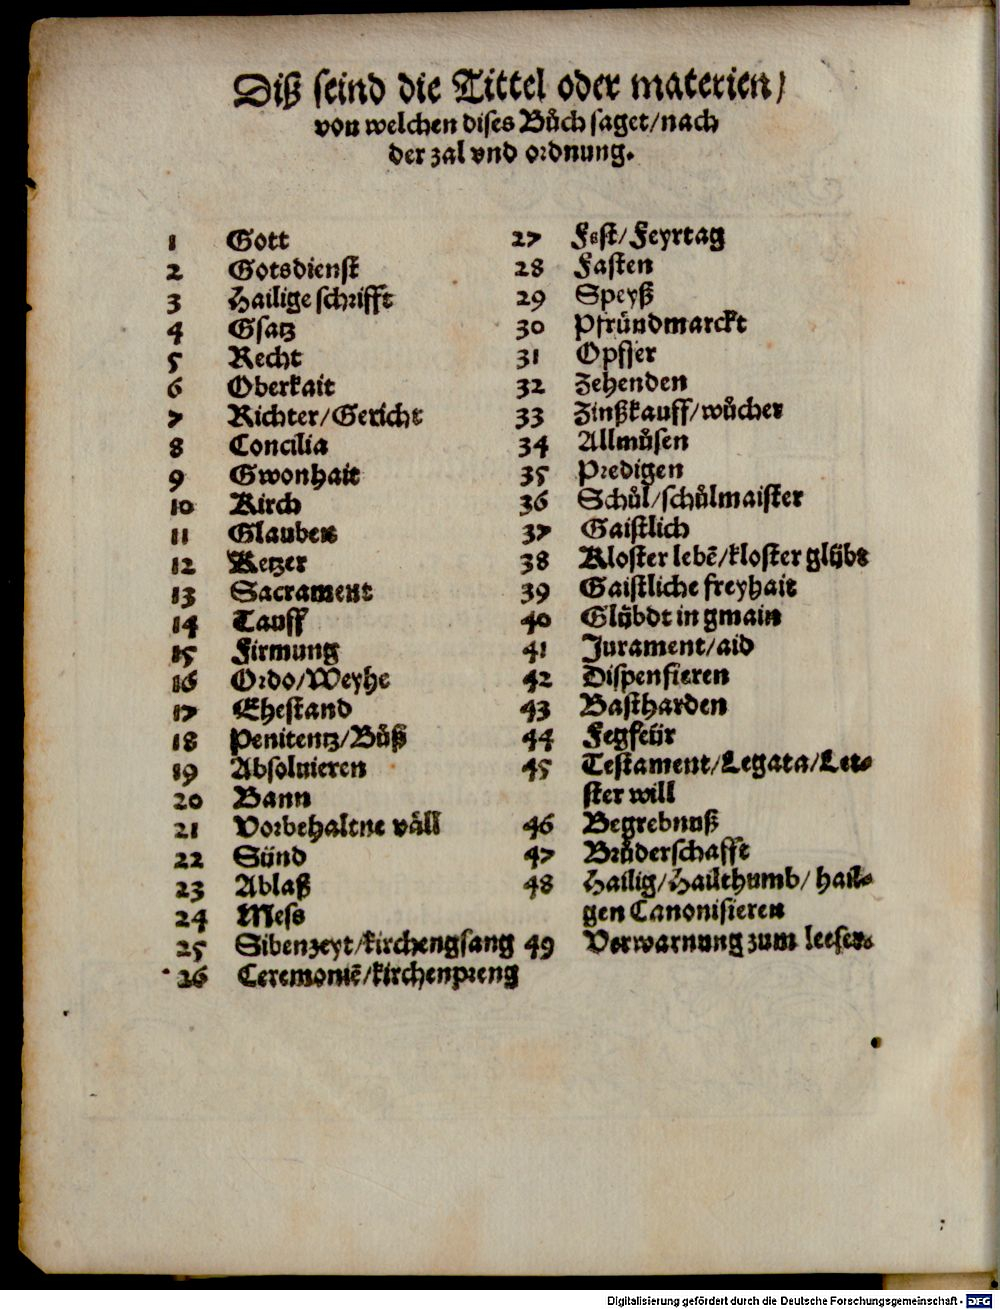 Diß seind die Tittel oder materien/
von welchen dises Bůch saget/nach
der zal vnd ordnung.
1 Gott
2 Gotsdienst
3 Hailige schrifft
4 Gsatz
5 Recht
6 Oberkait
7 Richter/Gericht
8 Concilia
9 Gwonhait
10 Kirch
11 Glauben
12 Ketzer
13 Sacrament
14 Tauff
15 Firmung
16 Ordo/Weyhe
17 Ehestand
18 Penitentz/Bůß
19 Absoluieren
20 Bann
21 Vorbehaltne väll
22 Sünd
23 Ablaß
24 Mess
25 Sibenzeyt/kirchengsang
26 Ceremoniē/kirchenpreng
27 Fest/Feyrtag
28 Fasten
29 Speyß
30 Pfründmarckt
31 Opffer
32 Zehenden
33 Zinßkauff/wůcher
34 Allmůsen
35 Predigen
36 Schůl/schůlmaister
37 Gaistlich
38 Kloster lebē/kloster glübt
39 Gaistliche freyhait
40 Glübdt in gmain
41 Jurament/aid
42 Dispensieren
43 Bastharden
44 Fegfeür
45 Testament/Legata/Let-
ster will
46 Begrebnuß
47 Brůderschafft
48 Hailig/Hailthumb/hail-
gen Canonisieren
49 Verwarnung zum leeser.
Digitalisierung gefördert durch die Deutsche Forschungsgemeinschaft - DFG